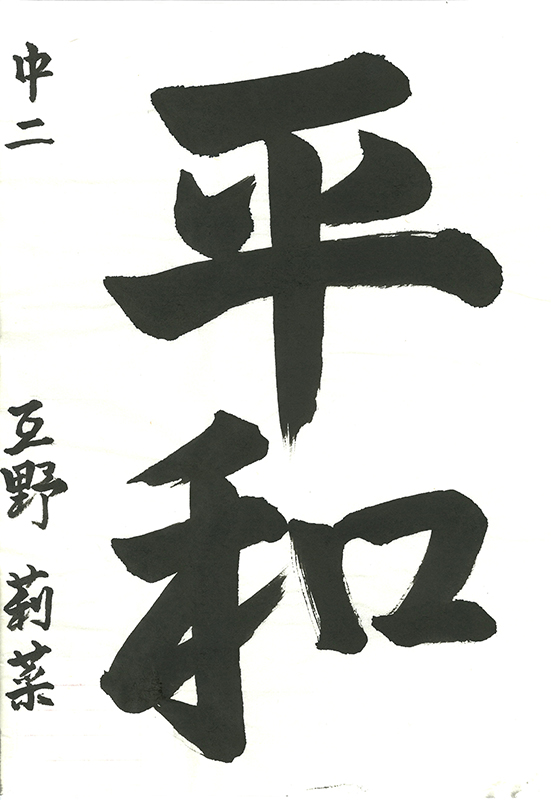 平和
中二 互野 莉菜